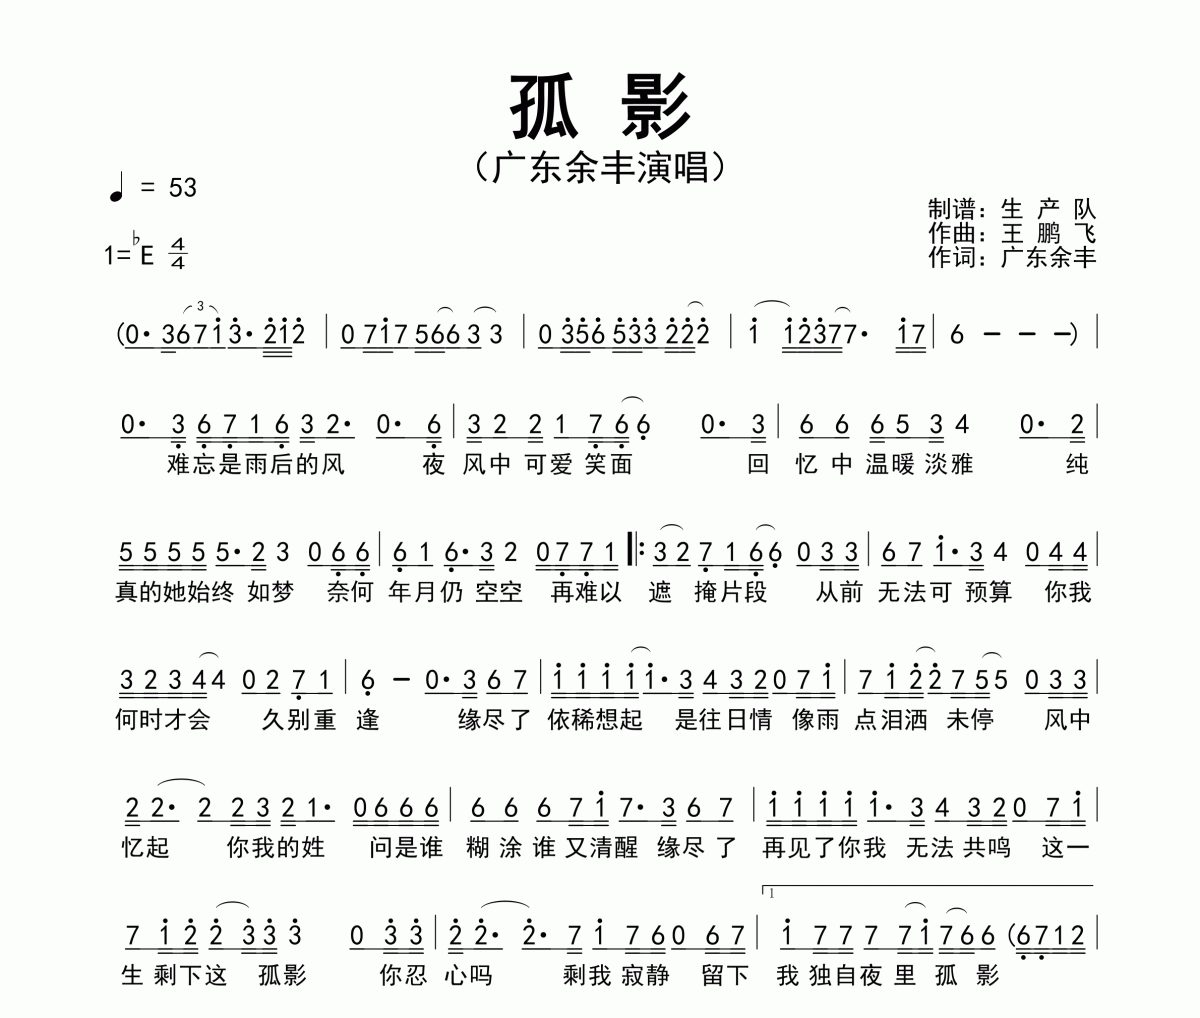 孤 影
（广东余丰演唱）
♩ = 53
制谱：生 产 队
作曲：王 鹏 飞
1=♭E 4/4
作词：广东余丰
(0· 3 6 7 1 3· 2 1 2 | 0 7 1 7 5 6 6 3 3 | 0 3 5 6 5 3 3 2 2 2 | 1 1 2 3 7 7· 1 7 | 6 - - -) |
0· 3 6 7 1 6 3 2· 0· 6 | 3 2 2 1 7 6 6 0· 3 | 6 6 6 5 3 4 0· 2 |
难忘是雨后的风 夜 风中 可爱 笑面 回 忆中 温暖 淡雅 纯
5 5 5 5 5· 2 3 0 6 6 | 6 1 6· 3 2 0 7 7 1 |: 3 2 7 1 6 6 0 3 3 | 6 7 1· 3 4 0 4 4 |
真的她始终 如梦 奈何 年月仍 空空 再难以 遮 掩片段 从前 无法可 预算 你我
3 2 3 4 4 0 2 7 1 | 6 - 0· 3 6 7 | 1 1 1 1 1· 3 4 3 2 0 7 1 | 7 1 2 2 7 5 5 0 3 3 |
何时才会 久别重 逢 缘尽了 依稀想起 是往日情 像雨 点泪洒 未停 风中
2 2· 2 2 3 2 1· 0 6 6 6 | 6 6 6 7 1 7· 3 6 7 | 1 1 1 1 1· 3 4 3 2 0 7 1 |
忆起 你我的姓 问是谁 糊涂谁 又清醒 缘尽了 再见了你我 无法共鸣 这一
1
7 1 2 2 3 3 3 0 3 3 | 2 2· 2· 7 1 7 6 0 6 7 | 1 7 7 7 7 1 7 6 6 (6 7 1 2 |
生 剩下这 孤影 你忍 心吗 剩我 寂静 留下 我 独自夜 里 孤 影